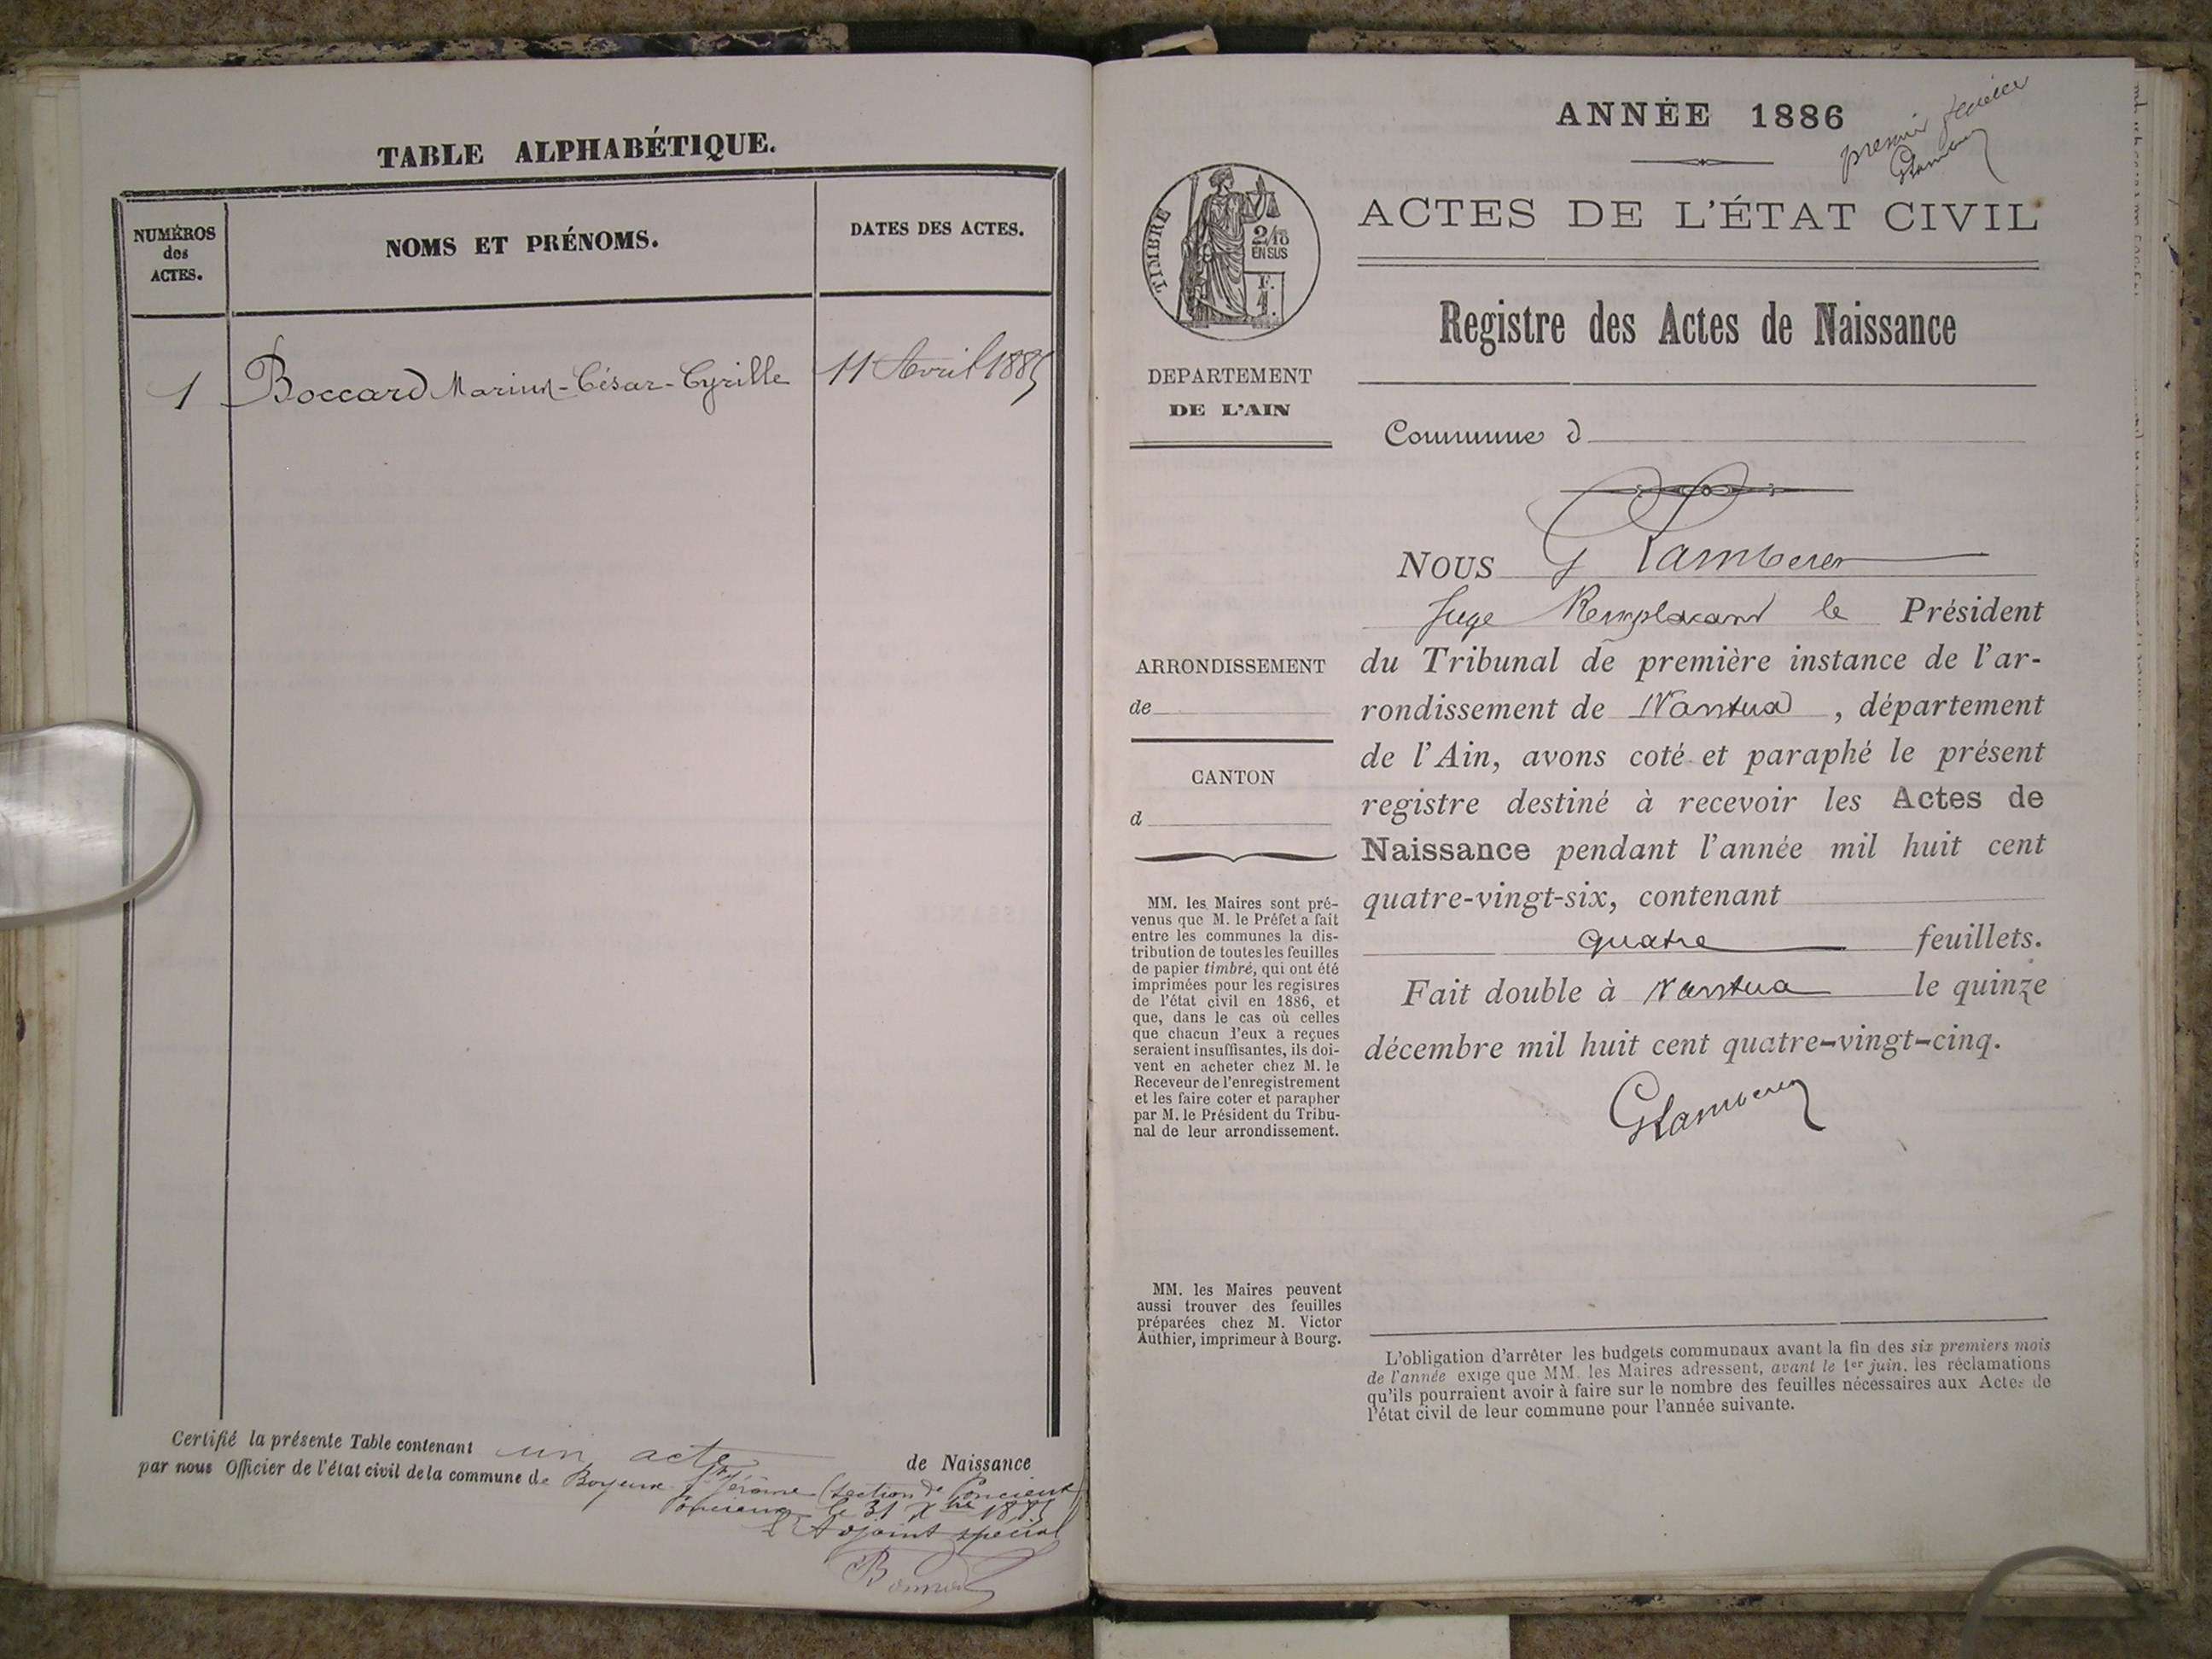 TABLE ALPHABÉTIQUE.
NUMÉROS
des
ACTES.
NOMS ET PRÉNOMS.
DATES DES ACTES.
1 Boccard Marius-César-Cyrille 11 Avril 1885
Certifié la présente Table contenant un acte de Naissance
par nous Officier de l'état civil de la commune de Boyeux St Jérôme (section de Poncieux)
Poncieux le 31 Xbre 1885
L'Adjoint spécial
ANNÉE 1886
premier feuillet
TIMBRE
2/10
EN SUS
F.
1.
ACTES DE L'ÉTAT CIVIL
Registre des Actes de Naissance
DEPARTEMENT
DE L'AIN
Commune d
NOUS G
Juge Remplacant le Président
du Tribunal de première instance de l'ar-
rondissement de Nantua, département
de l'Ain, avons coté et paraphé le présent
registre destiné à recevoir les Actes de
Naissance pendant l'année mil huit cent
quatre-vingt-six, contenant
quatre feuillets.
Fait double à Nantua le quinze
décembre mil huit cent quatre-vingt-cinq.
ARRONDISSEMENT
de
CANTON
d
MM. les Maires sont pré-
venus que M. le Préfet a fait
entre les communes la dis-
tribution de toutes les feuilles
de papier timbré, qui ont été
imprimées pour les registres
de l'état civil en 1886, et
que, dans le cas où celles
que chacun d'eux a reçues
seraient insuffisantes, ils doi-
vent en acheter chez M. le
Receveur de l'enregistrement
et les faire coter et parapher
par M. le Président du Tribu-
nal de leur arrondissement.
MM. les Maires peuvent
aussi trouver des feuilles
préparées chez M. Victor
Authier, imprimeur à Bourg.
L'obligation d'arrêter les budgets communaux avant la fin des six premiers mois
de l'année exige que MM. les Maires adressent, avant le 1er juin, les réclamations
qu'ils pourraient avoir à faire sur le nombre des feuilles nécessaires aux Actes de
l'état civil de leur commune pour l'année suivante.